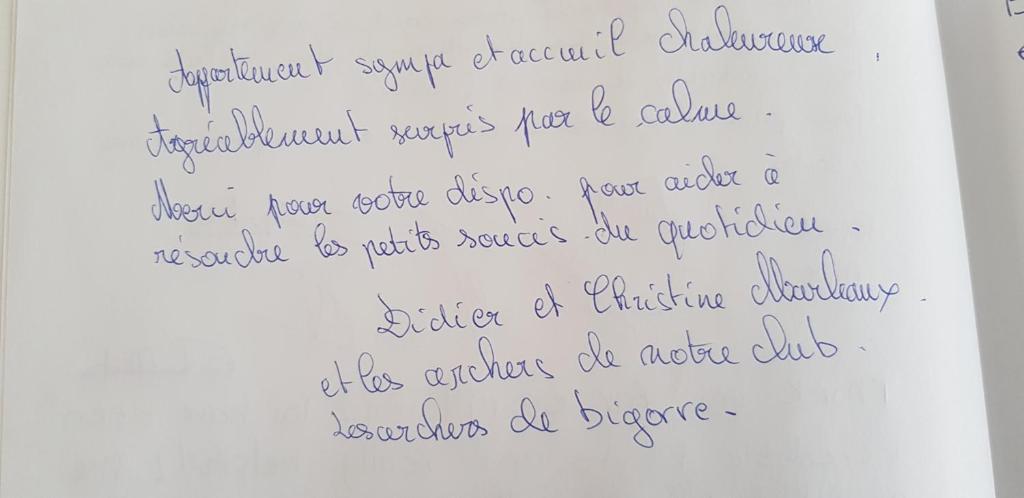 Appartement sympa et accueil chaleureuse,
Agréablement surpris par le calme.
Merci pour votre dispo. pour aider à
résoudre les petits soucis du quotidien.
Didier et Christine Marleaux.
et les archers de notre club.
Les archers de bigorre-